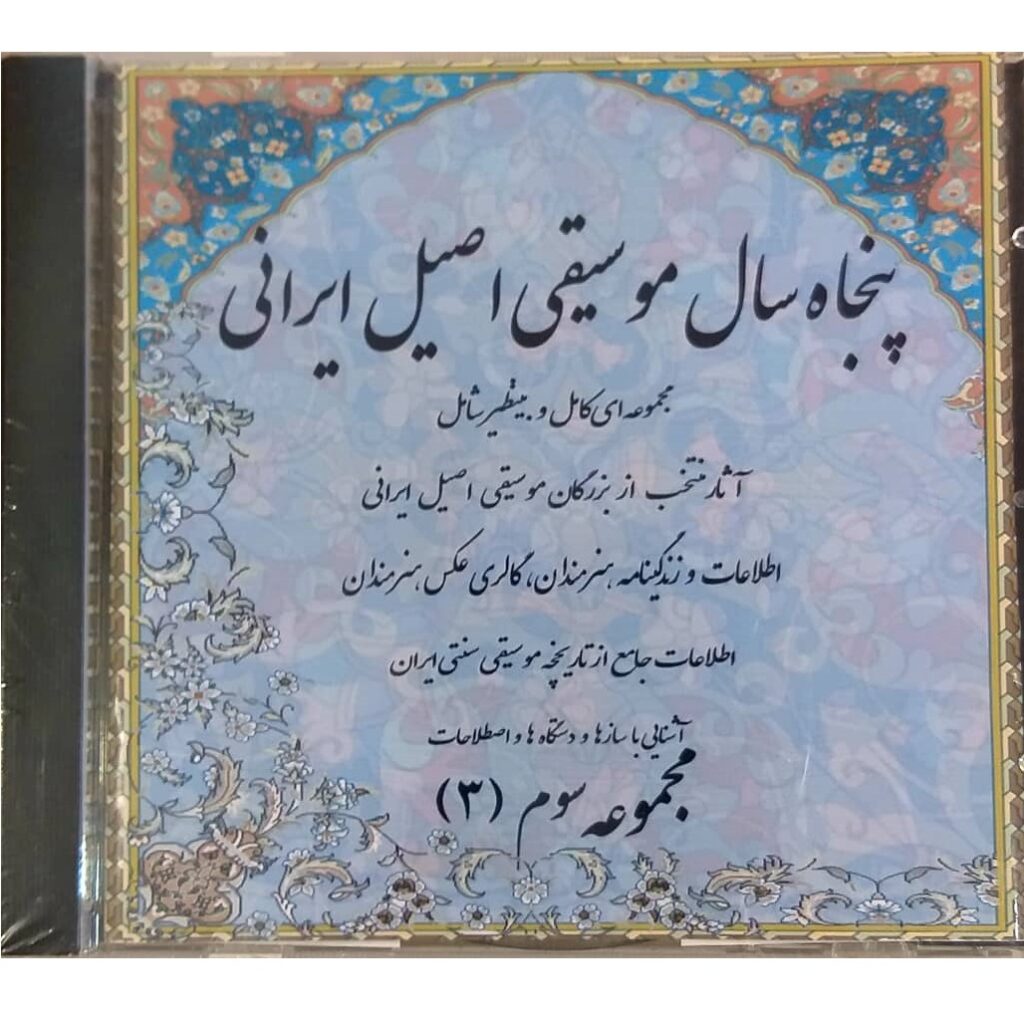 پنجاه سال موسیقی اصیل ایرانی
مجموعه ای کامل و بینظیر شامل
آثار منتخب از بزرگان موسیقی اصیل ایرانی
اطلاعات و زندگینامه هنرمندان، گالری عکس هنرمندان
اطلاعات جامع از تاریخچه موسیقی سنتی ایران
آشنایی با سازها و دستگاه ها و اصطلاحات
مجموعه سوم (۳)